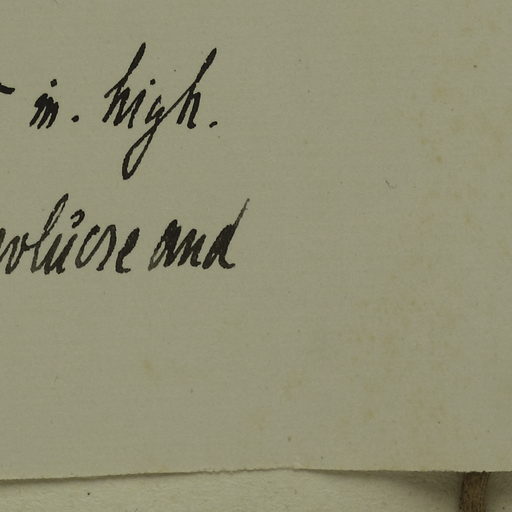 in. high.
volucre and